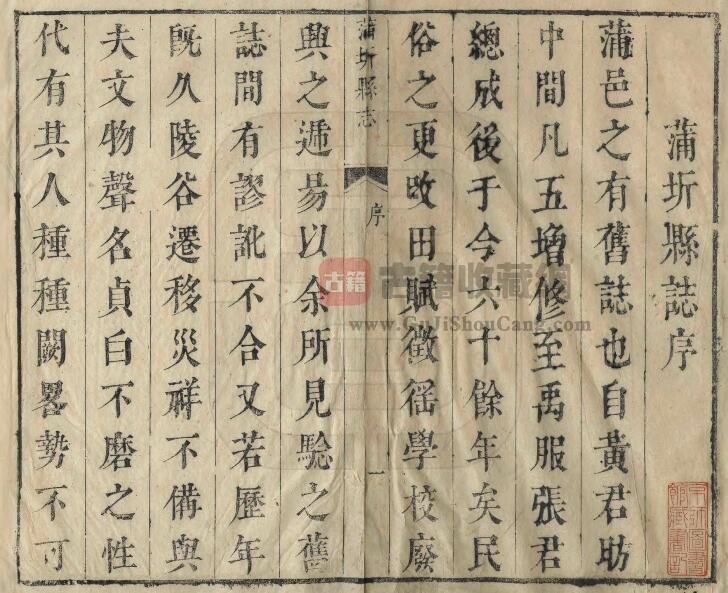 蒲圻縣誌序
蒲邑之有舊誌也自黃君昉
中間凡五增修至禹服張君
總成後于今六十餘年矣民
俗之更改田賦徵徭學校廢
蒲圻縣志
序
一
興之遞易以余所見驗之舊
誌間有謬訛不合又若歷年
旣久陵谷遷移災祥不備與
夫文物聲名貞白不磨之性
代有其人種種闕畧勢不可
古籍 古籍收藏網
www.GuJiShouCang.com